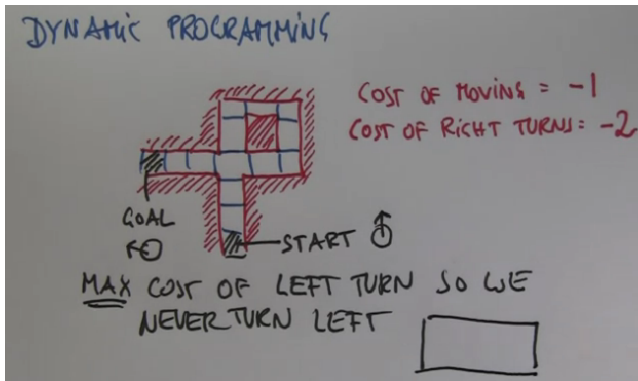 DYNAMIC PROGRAMMING
COST OF MOVING = -1
COST OF RIGHT TURNS: -2
GOAL
START
MAX COST OF LEFT TURN SO WE
NEVER TURN LEFT